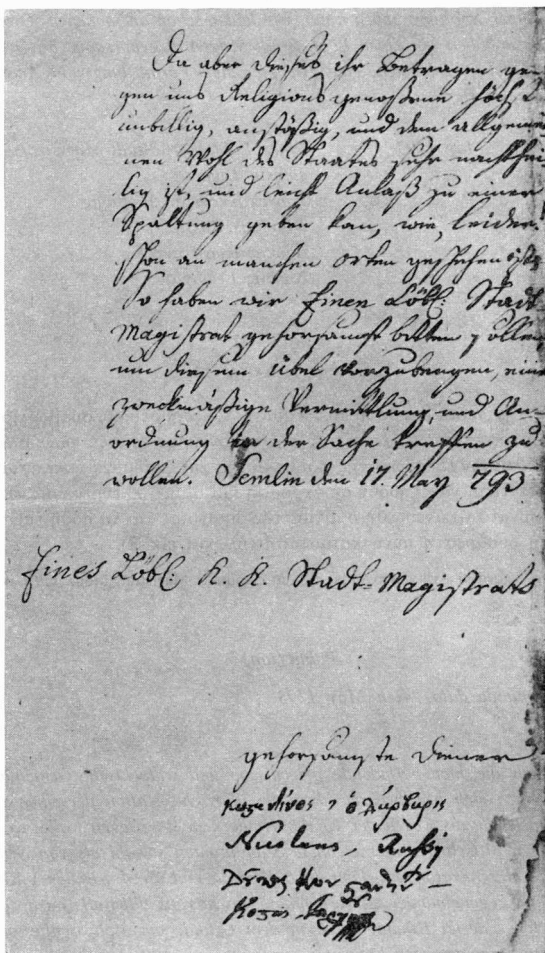 Da aber dieses ihr Betragen ge-
gen uns Religionsgenoßene höchst
unbillig, anstößig, und dem allgemei
nen Wohl des Staates sehr nachthei
lig ist, und leicht Anlaß zu einer
Spaltung geben kan, wie, leider!
schon an manchen Orten geschehen ist;
So haben wir Einen Löbl: Stadt
Magistrat gehorsamst bitten sollen,
um diesem übel vorzubeugen, eine
zweckmäßige Vermittlung, und An-
ordnung in der Sache treffen zu
wollen. Semlin den 17. May 793
Eines Löbl: K. K. Stadt-Magistrats
gehorsamste Diener
Nicolaus